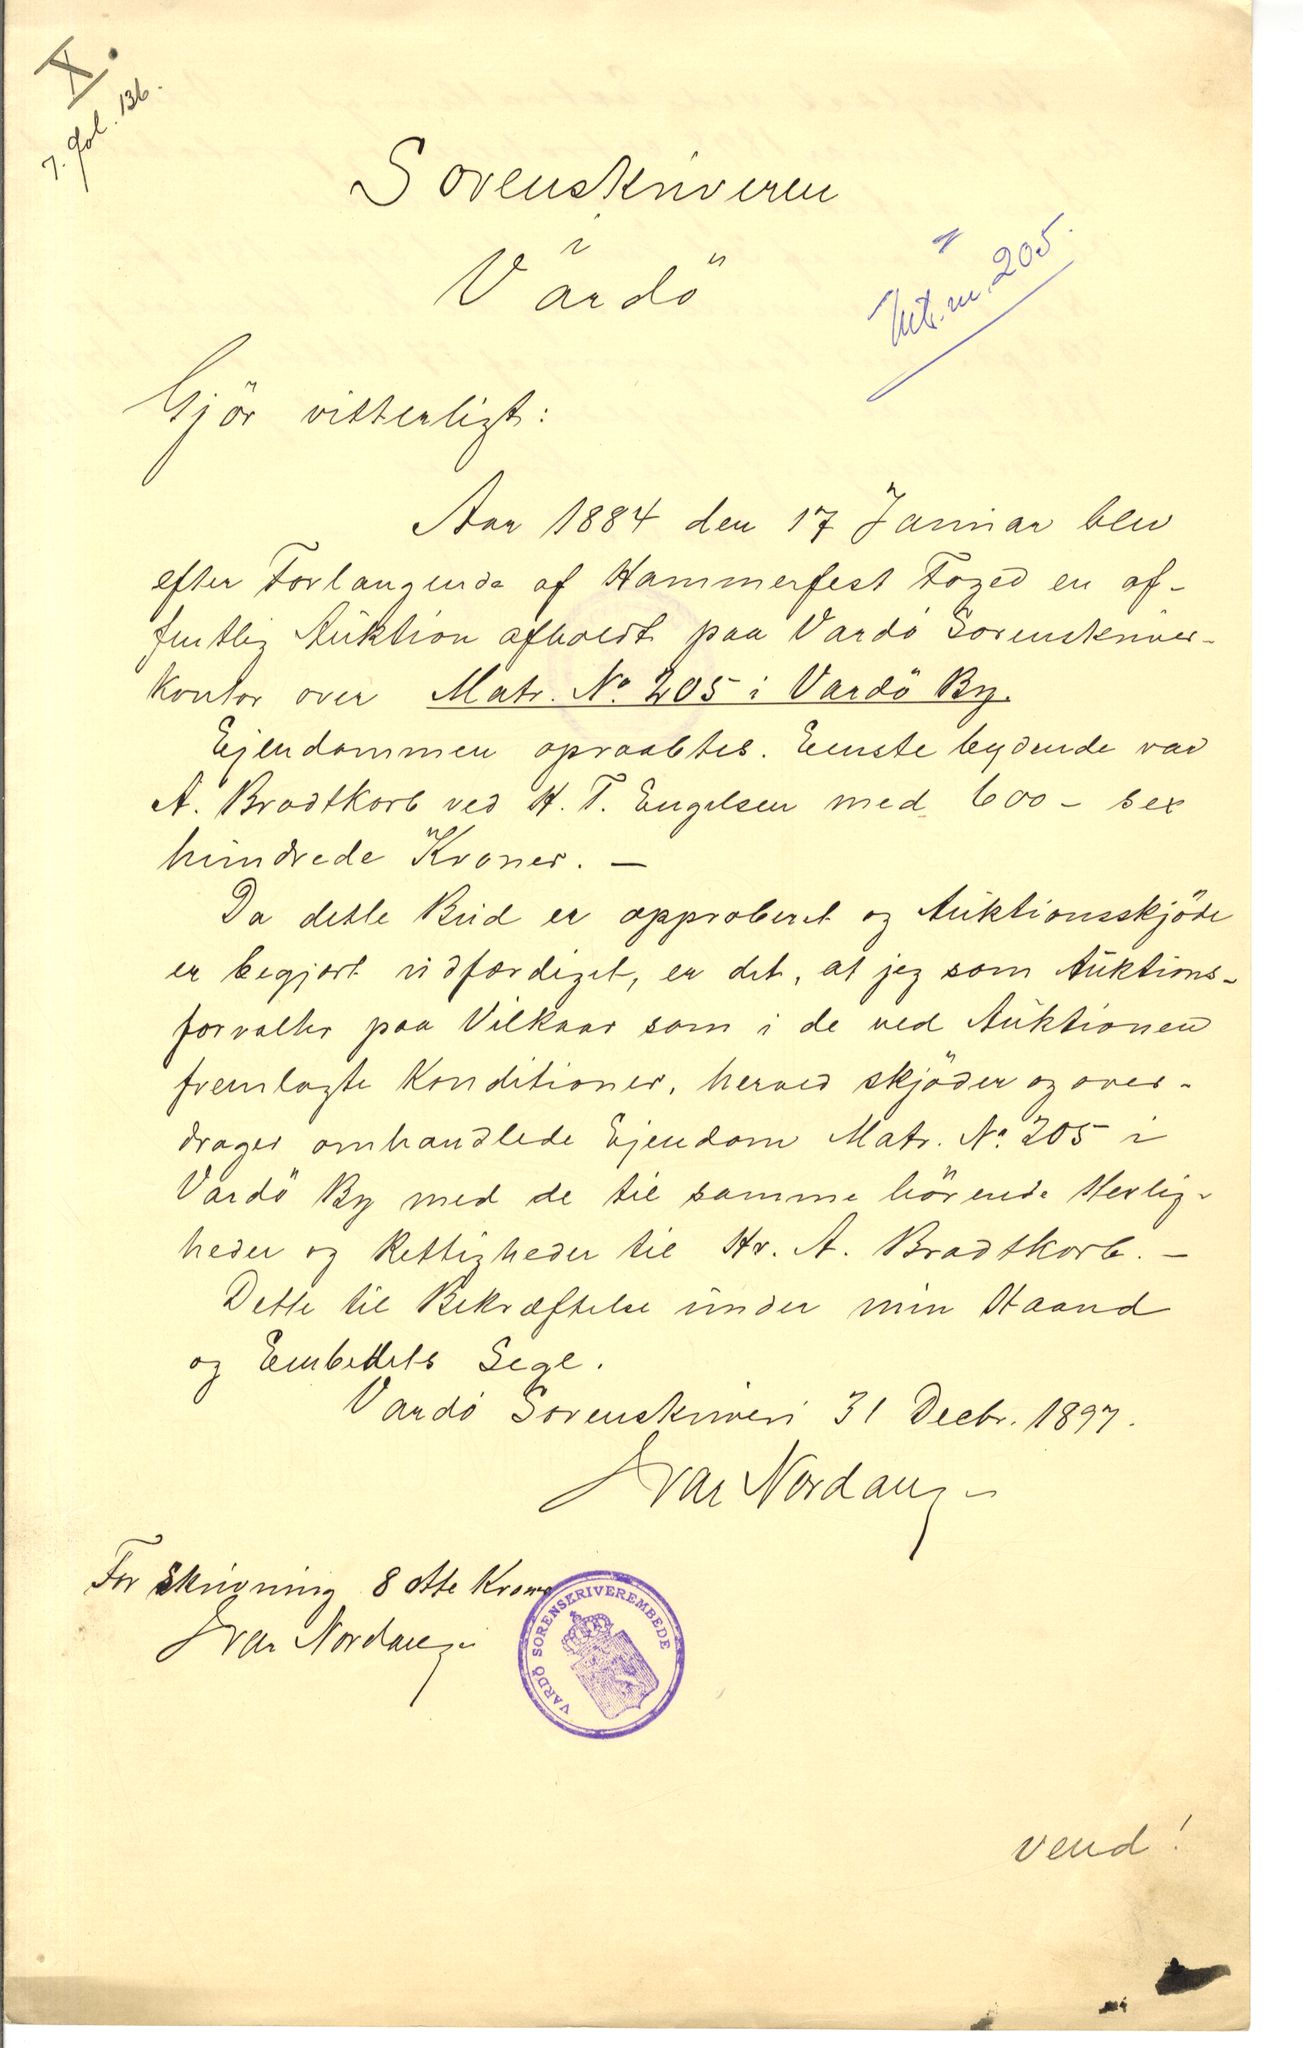 X.
7. fol. 136.
Sorenskriveren
i
Vardö
Mt. nr. 205.
Gjör vitterligt:
Aar 1884 den 17 Januar blev
efter Forlangende af Hammerfest Foged en of-
fentlig Auktion afholdt paa Vardö Sorenskriver-
kontor over Matr. No. 205 i Vardö By.
Ejendommen opraabtes. Eneste bydende var
A. Brodtkorb ved H. T. Engelsen med 600 – sex
hundrede Kroner. —
Da dette Bud er approberet og Auktionsskjöde
er begjært udfærdiget, er det, at jeg som Auktions-
forvalter paa Vilkaar som i de ved Auktionen
fremlagte Konditioner, herved skjöder og over-
drager omhandlede Ejendom Matr. No. 205 i
Vardö By med de til samme hörende Herlig-
heder og Rettigheder til Hr. A. Brodtkorb. —
Dette til Bekræftelse under min Haand
og Embedets Segl.
Vardö Sorenskriveri 31 Decbr. 1897.
Ivar Nordang
For Skrivning 8 otte Kroner
Ivar Nordang
VARDÖ SORENSKRIVEREMBEDE
vend!